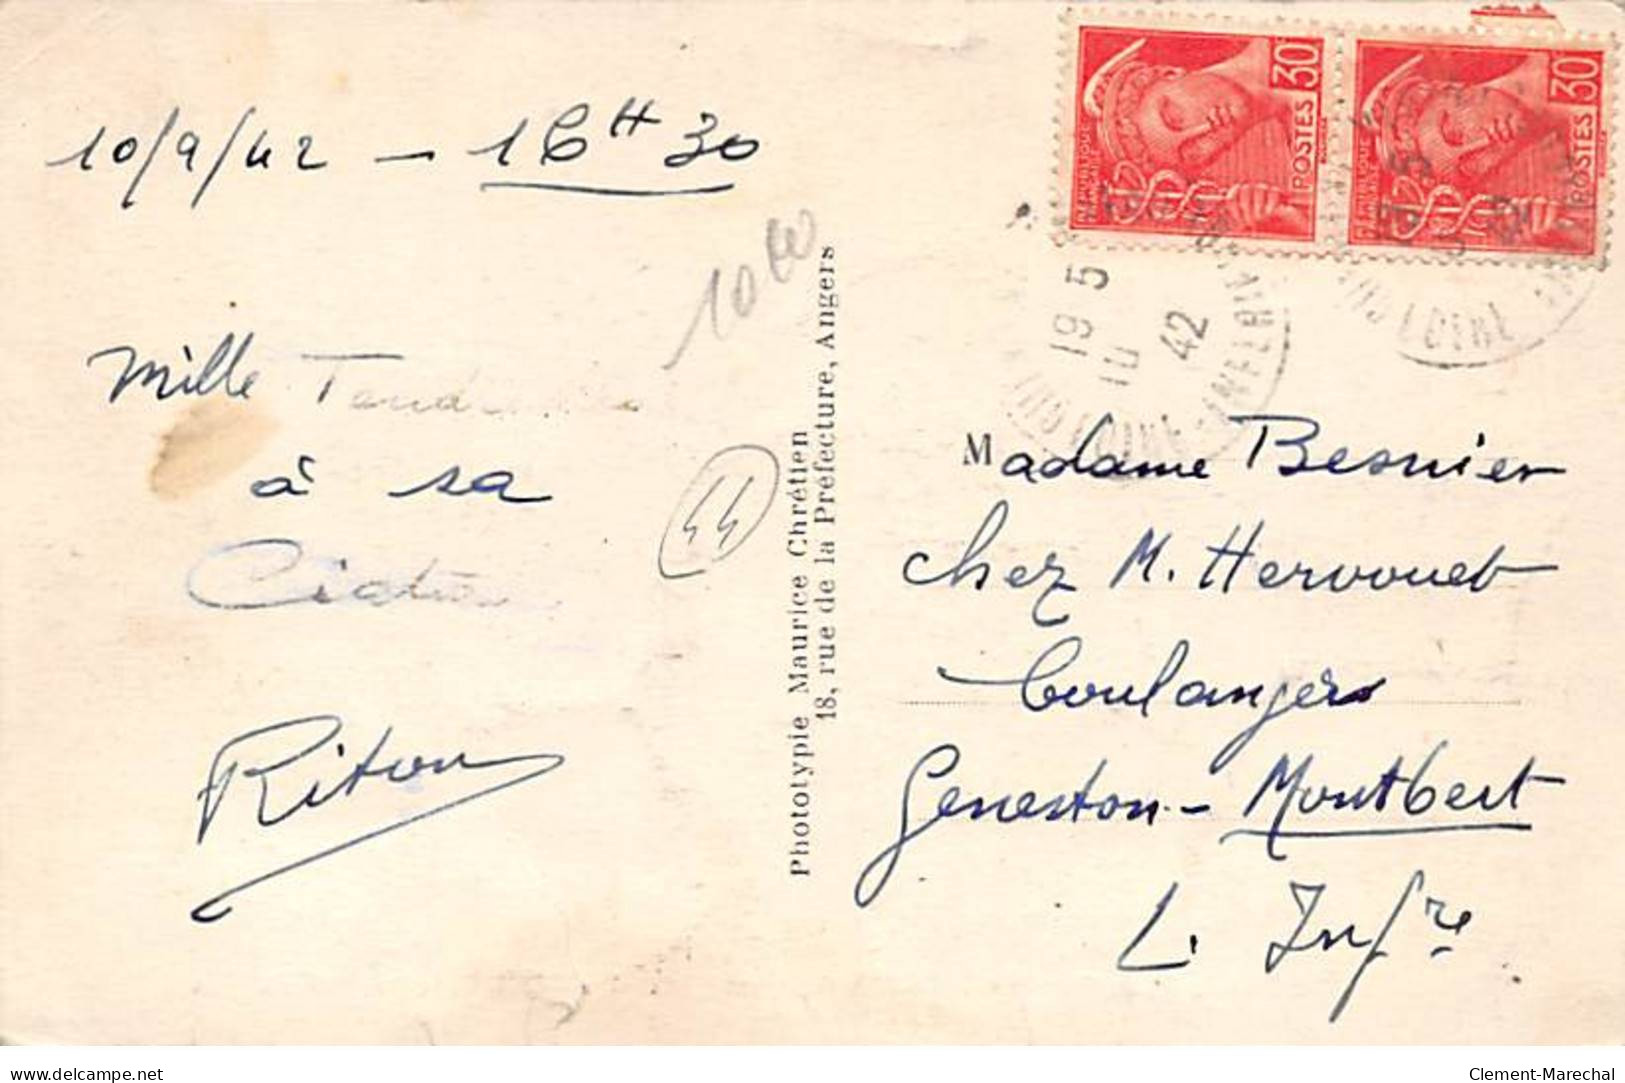 10/9/42 — 16H30
Mille Tendresses
à sa
Riton
1000
44
Phototypie Maurice Chrétien
18, rue de la Préfecture, Angers
30F
POSTES
30F
POSTES
19 5
10
42
LOIRE-INFERIEURE
19 5
42
LOIRE
Madame Besnier
chez M. Hervouet
boulangers
Geneston - Montbert
L. Infre
www.delcampe.net
Clement-Marechal